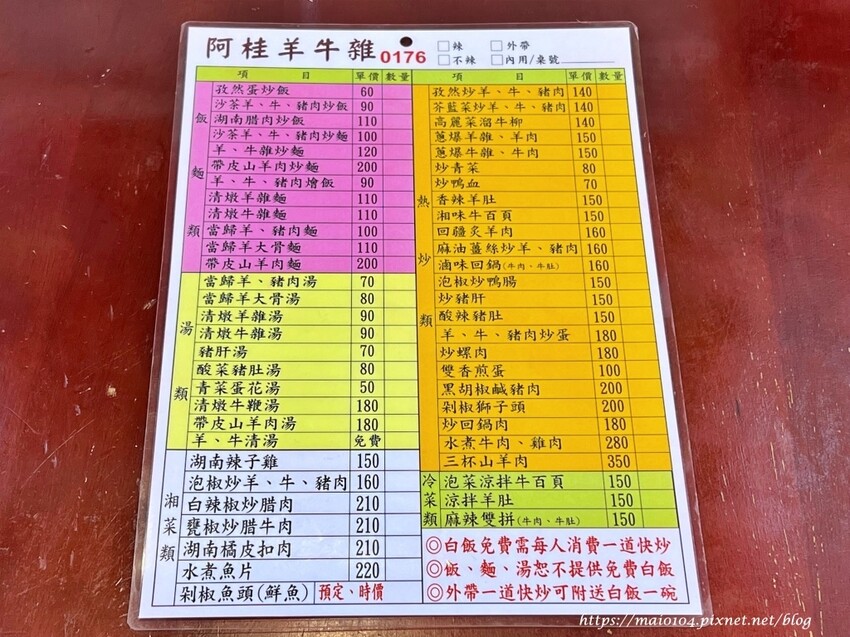 阿桂羊牛雜 0176 □辣 □外帶
□不辣 □內用/桌號
項 目 單價 數量
飯麵類
孜然蛋炒飯 60
沙茶羊、牛、豬肉炒飯 90
湖南腊肉炒飯 110
沙茶羊、牛、豬肉炒麵 100
羊、牛雜炒麵 120
帶皮山羊肉炒麵 200
羊、牛、豬肉燴飯 90
清燉羊雜麵 110
清燉牛雜麵 110
當歸羊、豬肉麵 100
當歸羊大骨麵 110
帶皮山羊肉麵 200
湯類
當歸羊、豬肉湯 70
當歸羊大骨湯 80
清燉羊雜湯 90
清燉牛雜湯 90
豬肝湯 70
酸菜豬肚湯 80
青菜蛋花湯 50
清燉牛鞭湯 180
帶皮山羊肉湯 180
羊、牛清湯 免費
湘菜類
湖南辣子雞 150
泡椒炒羊、牛、豬肉 160
白辣椒炒腊肉 210
甕椒炒腊牛肉 210
湖南橘皮扣肉 210
水煮魚片 220
剁椒魚頭(鮮魚) 預定、時價
項 目 單價 數量
熱炒類
孜然炒羊、牛、豬肉 140
芥藍菜炒羊、牛、豬肉 140
高麗菜溜牛柳 140
蔥爆羊雜、羊肉 150
蔥爆牛雜、牛肉 150
炒青菜 80
炒鴨血 70
香辣羊肚 150
湘味牛百頁 150
回疆炙羊肉 160
麻油薑絲炒羊、豬肉 160
滷味回鍋(牛肉、牛肚) 160
泡椒炒鴨腸 150
炒豬肝 150
酸辣豬肚 150
羊、牛、豬肉炒蛋 180
炒螺肉 180
雙香煎蛋 100
黑胡椒鹹豬肉 200
剁椒獅子頭 200
炒回鍋肉 180
水煮牛肉、雞肉 280
三杯山羊肉 350
冷菜類
泡菜涼拌牛百頁 150
涼拌羊肚 150
麻辣雙拼(牛肉、牛肚) 150
◎白飯免費需每人消費一道快炒
◎飯、麵、湯恕不提供免費白飯
◎外帶一道快炒可附送白飯一碗
https://maio104.pixnet.net/blog